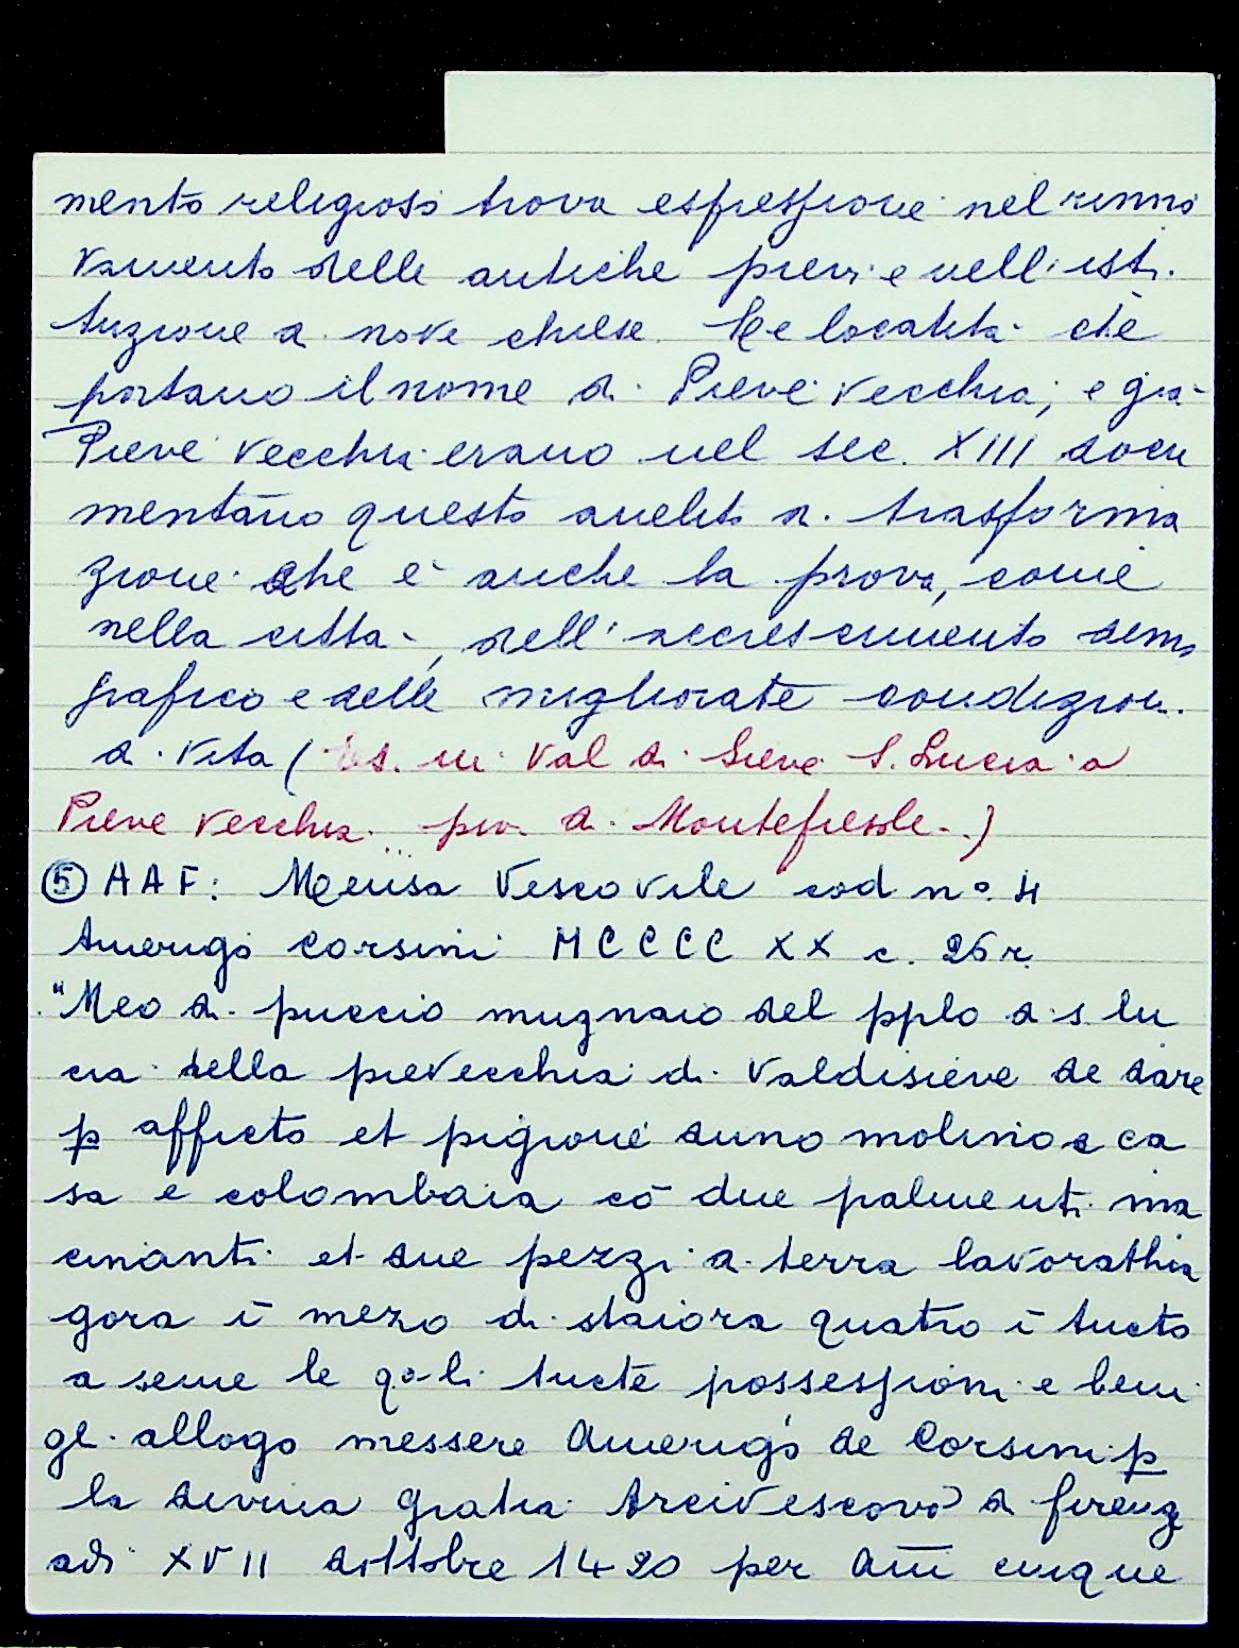 mento religioso trova espressione nel rinno
vamento delle antiche pievi e nell'isti
tuzione di nove chiese. Le località che
portano il nome di Pieve Vecchia, e già
Pieve Vecchia erano nel sec. XIII docu
mentano questo anelito di trasforma
zione che è anche la prova, come
nella città, dell'accrescimento demo
grafico e delle migliorate condizioni
di vita (Es. in Val di Sieve S. Lucia a
Pieve Vecchia... piv. di Montefiesole..)
⑤ AAF: Mensa Vescovile cod nº. 4
Amerigo Corsini MCCCCXX c. 26 r.
"Meo di puccio mugnaio del pplo di s lu
cia della pievecchia di Valdisieve de dare
p afficto et pigione duno molino e ca
sa e colombaia cō due palmenti ma
cinanti et due pezzi di terra lavorathia
gora ī mezo di staiora quatro ī tucto
a seme le qali tucte possessioni e beni
gl allogo messere Amerigo de Corsini p
la divina gratia Arcivescovo di firenz
adi XVII dottobre 1420 per anni cinque